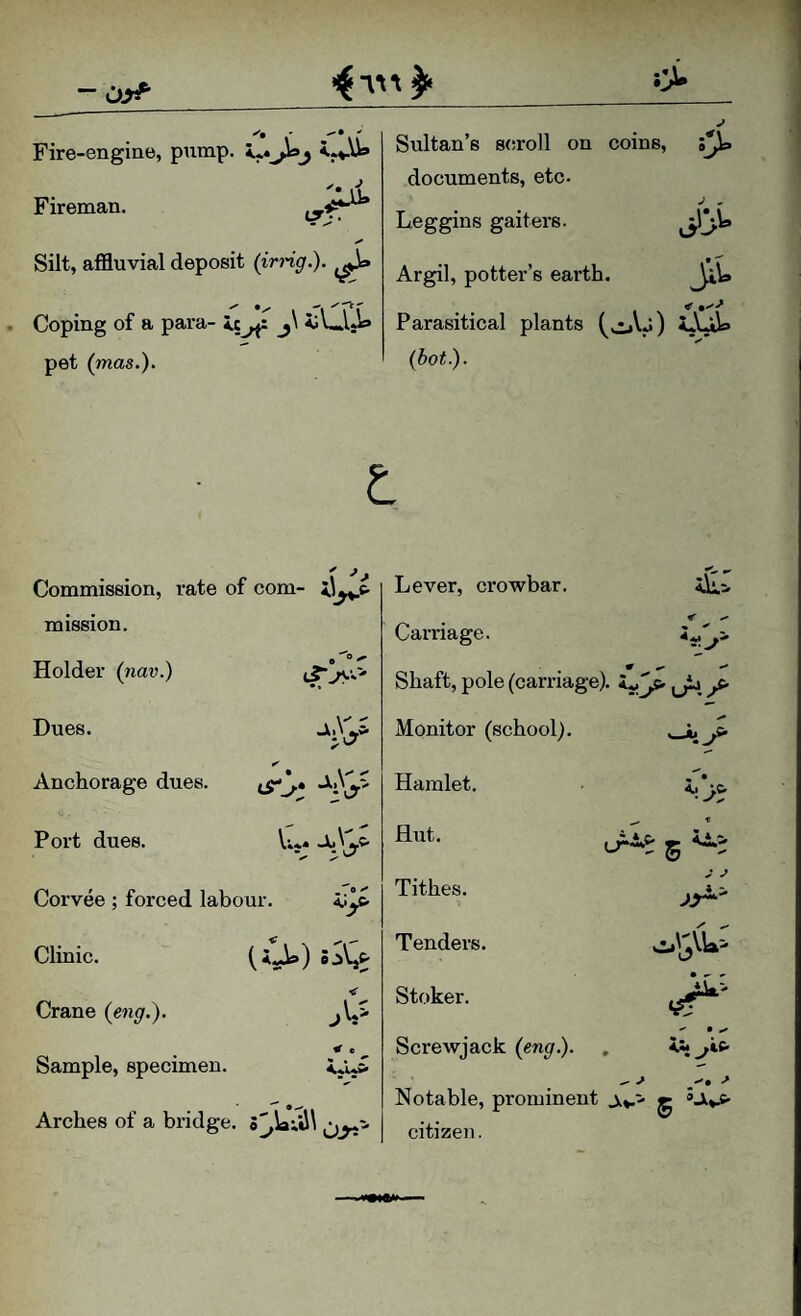 عيون —
طرة
Fire-engine, pump. طلمبة وطرمبة
Fireman. طلمبجي
Silt, affluvial deposit (irrig.). طمي
Coping of a para- او
pet (mas.).
Sultan's scroll on coins, طرة
documents, etc.
Leggins gaiters. طزلق
Argil, potter's earth. طفل
Parasitical plants (نبات) طفيلية
(bot.).
ع
Commission, rate of com- عمولة
mission.
Holder (nav.) عنبرجي
Dues. عوايد
Anchorage dues. عوايد مرسى
Port dues. عوايد مينا
Corvée ; forced labour. عونة
Clinic. (طبية) عيادة
Crane (eng.). عيار
Sample, specimen. عينة
Arches of a bridge. عيون القنطرة
Lever, crowbar. عتلة
Carriage. عربية
Shaft, pole (carriage). عريش عربية
Monitor (school). عريف
Hamlet. عزبة
Hut. عشة ج عشش
Tithes. عشور
Tenders. عطاءات
Stoker. عطشجي
Screwjack (eng.). عفريتة
Notable, prominent عمدة ج عمد
citizen.